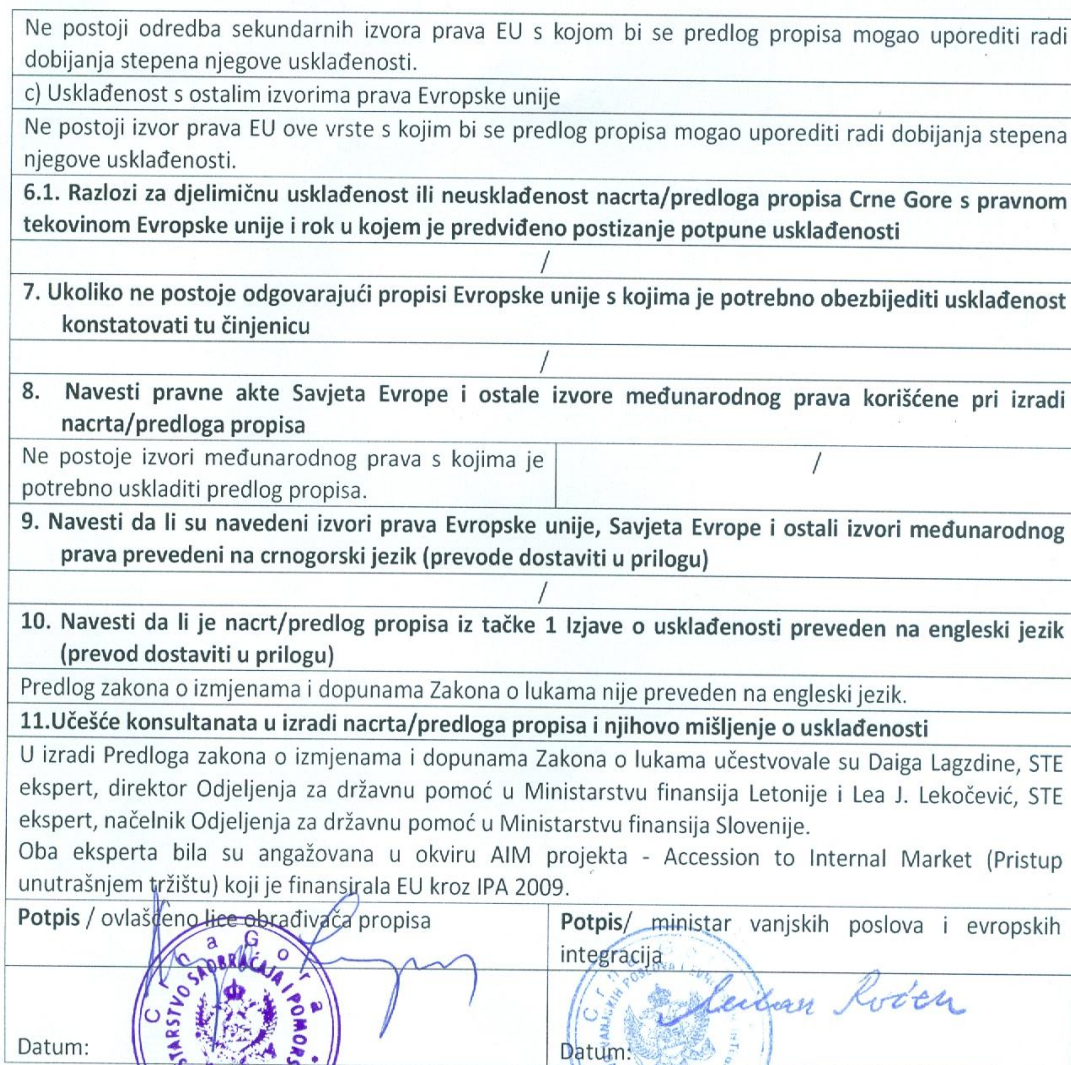 Ne postoji odredba sekundarnih izvora prava EU s kojom bi se predlog propisa mogao uporediti radi
dobijanja stepena njegove usklađenosti.
c) Usklađenost s ostalim izvorima prava Evropske unije
Ne postoji izvor prava EU ove vrste s kojim bi se predlog propisa mogao uporediti radi dobijanja stepena
njegove usklađenosti.
6.1. Razlozi za djelimičnu usklađenost ili neusklađenost nacrta/predloga propisa Crne Gore s pravnom
tekovinom Evropske unije i rok u kojem je predviđeno postizanje potpune usklađenosti
/
7. Ukoliko ne postoje odgovarajući propisi Evropske unije s kojima je potrebno obezbijediti usklađenost
konstatovati tu činjenicu
/
8. Navesti pravne akte Savjeta Evrope i ostale izvore međunarodnog prava korišćene pri izradi
nacrta/predloga propisa
Ne postoje izvori međunarodnog prava s kojima je
potrebno uskladiti predlog propisa.
/
9. Navesti da li su navedeni izvori prava Evropske unije, Savjeta Evrope i ostali izvori međunarodnog
prava prevedeni na crnogorski jezik (prevode dostaviti u prilogu)
/
10. Navesti da li je nacrt/predlog propisa iz tačke 1 Izjave o usklađenosti preveden na engleski jezik
(prevod dostaviti u prilogu)
Predlog zakona o izmjenama i dopunama Zakona o lukama nije preveden na engleski jezik.
11.Učešće konsultanata u izradi nacrta/predloga propisa i njihovo mišljenje o usklađenosti
U izradi Predloga zakona o izmjenama i dopunama Zakona o lukama učestvovale su Daiga Lagzdine, STE
ekspert, direktor Odjeljenja za državnu pomoć u Ministarstvu finansija Letonije i Lea J. Lekočević, STE
ekspert, načelnik Odjeljenja za državnu pomoć u Ministarstvu finansija Slovenije.
Oba eksperta bila su angažovana u okviru AIM projekta - Accession to Internal Market (Pristup
unutrašnjem tržištu) koji je finansirala EU kroz IPA 2009.
Potpis / ovlašćeno lice obrađivača propisa
Potpis/ ministar vanjskih poslova i evropskih
integracija
Crna Gora
STARSTVO SAOBRAĆAJA I POMORS
Datum:
Datum: